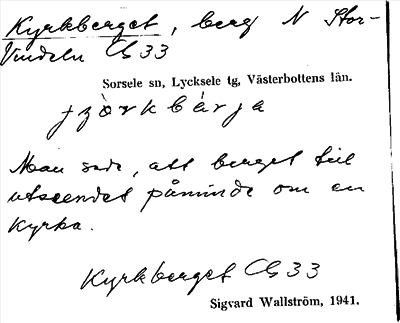 Kyrkberget, berg N Stor-
Vindeln Cb 33
Sorsele sn, Lycksele tg, Västerbottens län.
Man sade, att berget till
utseendet påminde om en
Kyrka.
Kyrkberget Cb 33
Sigvard Wallström, 1941.